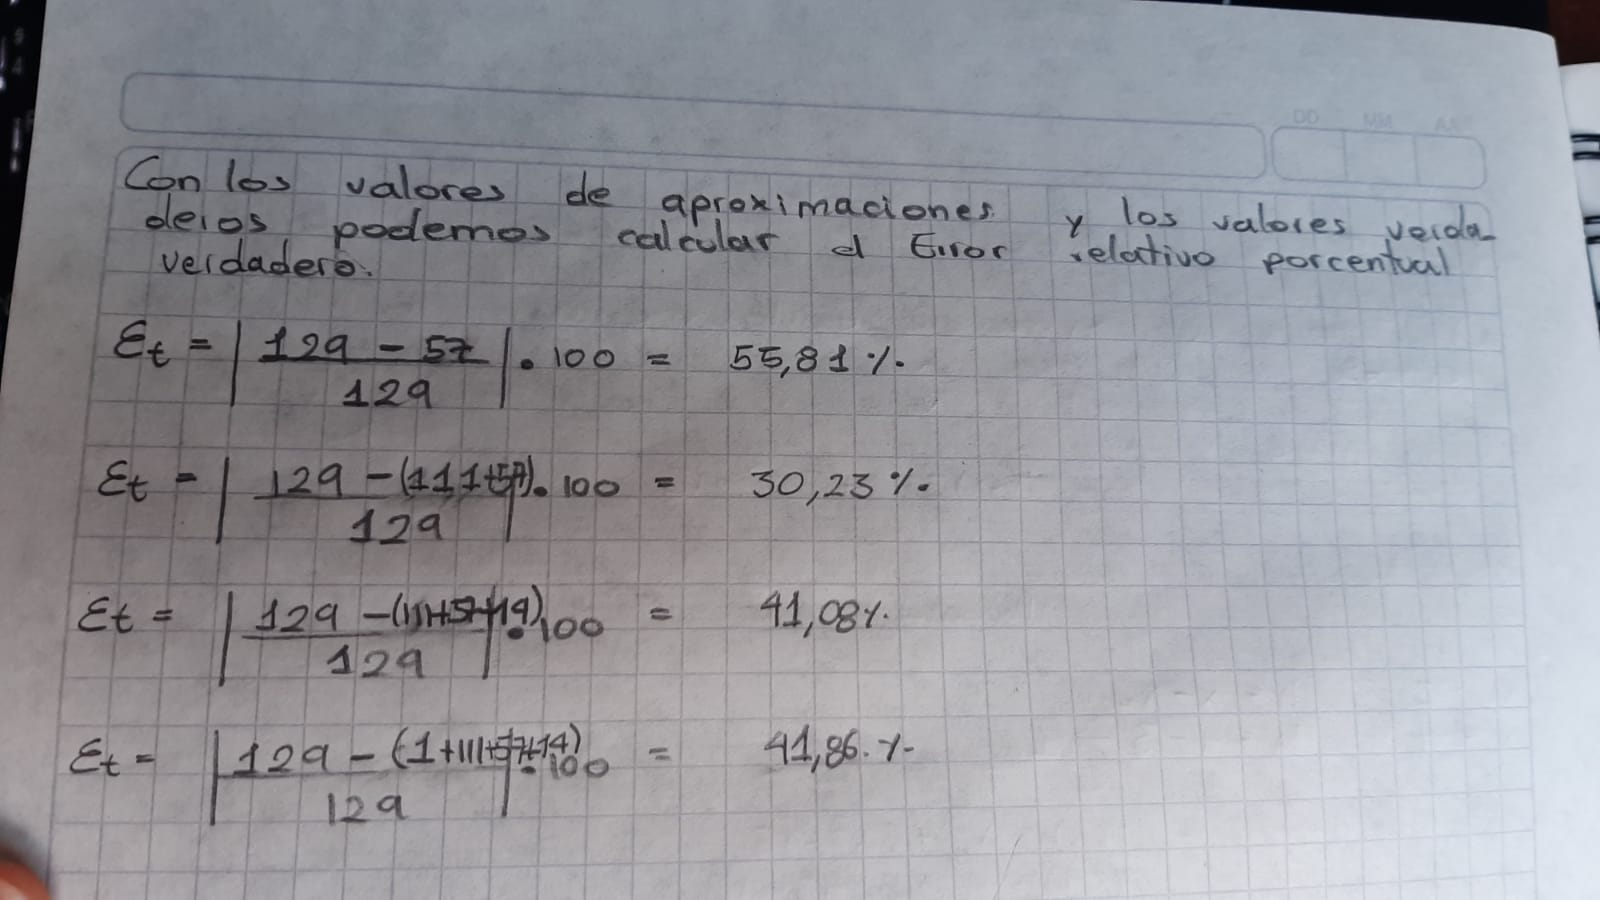 DD MM AA
Con los valores de aproximaciones y los valores verda-
deros podemos calcular el Error relativo porcentual
verdadero.
Et = | 129 - 57 / 129 | . 100 = 55,81 %.
Et = | 129 - (111+57) / 129 | . 100 = 30,23 %.
Et = | 129 - (111+57+14) / 129 | . 100 = 41,08 %.
Et = | 129 - (1+111+57+14) / 129 | . 100 = 41,86. %